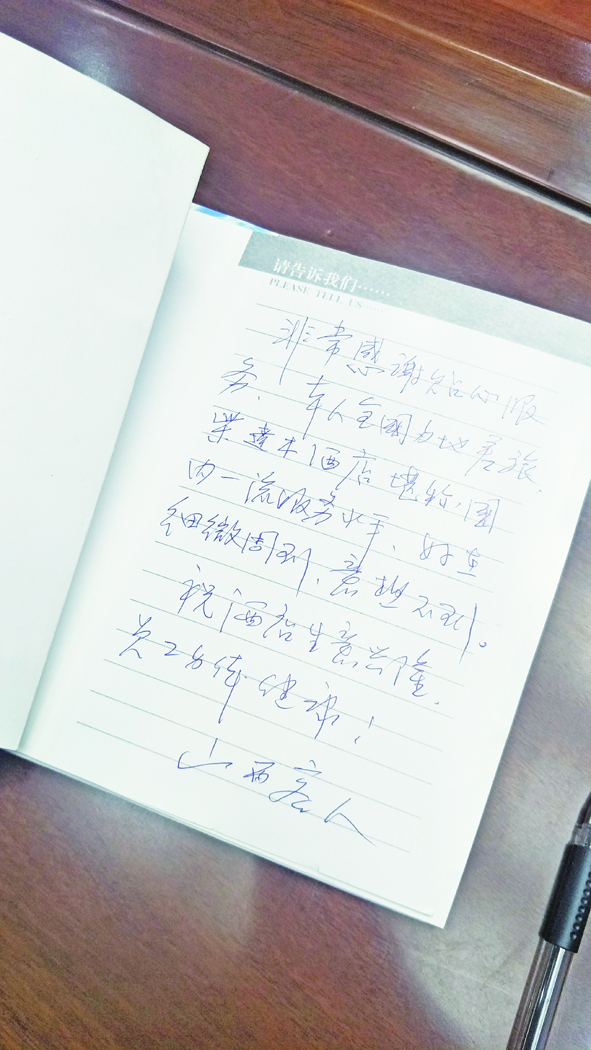 请告诉我们……
PLEASE TELL US……
非常感谢贴心服
务、本人全国各地差旅,
业达本酒店堪称国
内一流服务水平、好在
细微周到、意想不到。
祝酒店生意兴隆,
员工身体健康!
山西客人